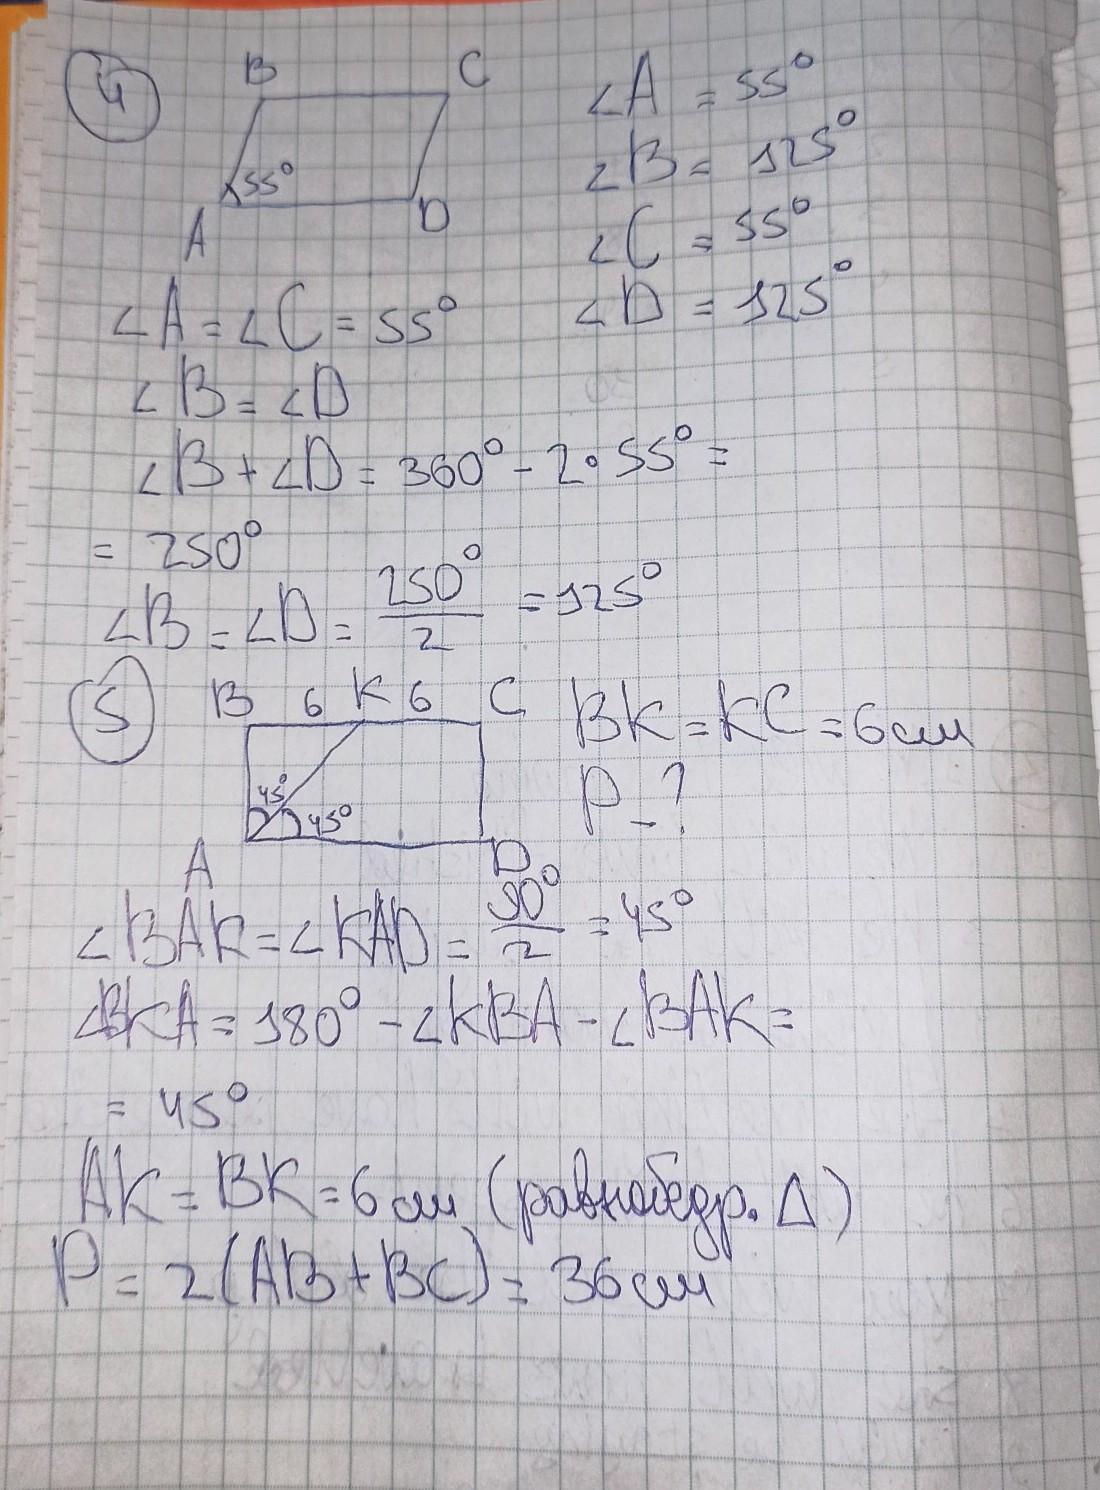 4
B C
55°
A D
∠A = 55°
∠B = 125°
∠C = 55°
∠D = 125°
∠A = ∠C = 55°
∠B = ∠D
∠B + ∠D = 360° - 2·55° =
= 250°
∠B = ∠D = 250°/2 = 125°
5
B 6 K 6 C
45°
45°
A D
BK = KC = 6 см
P - ?
∠BAK = ∠KAD = 90°/2 = 45°
∠BKA = 180° - ∠KBA - ∠BAK =
= 45°
AK = BK = 6 см (равнобедр. Δ)
P = 2(AB + BC) = 36 см